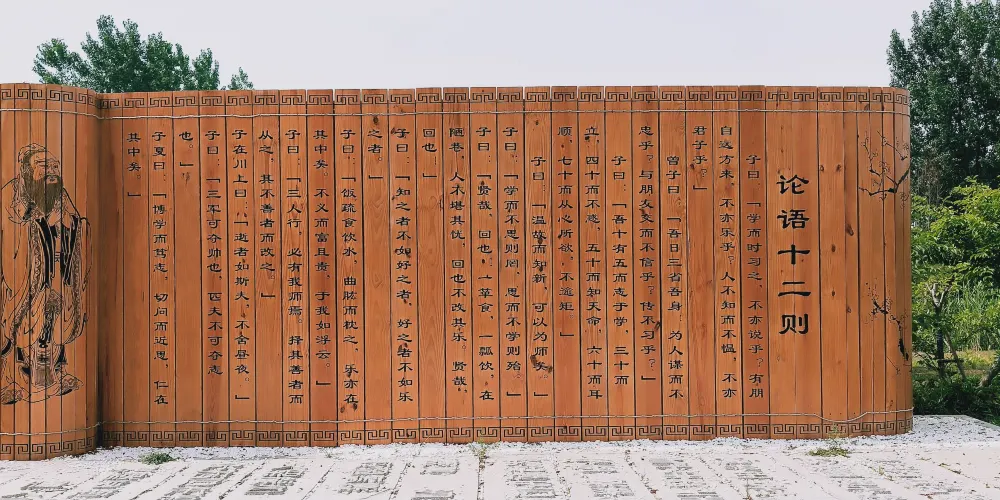 论语十二则
子曰：「学而时习之，不亦说乎？有朋
自远方来，不亦乐乎？人不知而不愠，不亦
君子乎？」
曾子曰：「吾日三省吾身：为人谋而不
忠乎？与朋友交而不信乎？传不习乎？」
子曰：「吾十有五而志于学，三十而
立，四十而不惑，五十而知天命，六十而耳
顺，七十而从心所欲，不逾矩」
子曰：「温故而知新，可以为师矣。」
子曰：「学而不思则罔，思而不学则殆。」
子曰：「贤哉，回也，一箪食，一瓢饮，在
陋巷，人不堪其忧，回也不改其乐。贤哉，
回也」
子曰：「知之者不如好之者，好之者不如乐
之者。」
子曰：「饭疏食饮水，曲肱而枕之，乐亦在
其中矣。不义而富且贵，于我如浮云。」
子曰：「三人行，必有我师焉。择其善者而
从之，其不善者而改之。」
子在川上曰：「逝者如斯夫，不舍昼夜。」
子曰：「三军可夺帅也，匹夫不可夺志
也。」
子夏曰：「博学而笃志，切问而近思，仁在
其中矣」